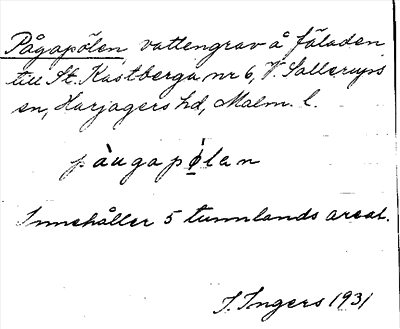 Pågapölen vattengrav å fäladen
till St. Kastberga nr 6, V. Sallerups
sn, Harjagers hd, Malm. l.
pàugapö̀lan
Innehåller 5 tunnlands areal.
I. Ingers 1931